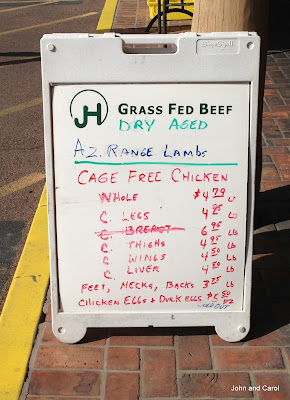 JH GRASS FED BEEF
DRY AGED
AZ. RANGE LAMBS
CAGE FREE CHICKEN
WHOLE $4.79 LB
C. LEGS 4.95 LB
C. BREAST 6.95 LB
C. THIGHS 4.95 LB
C. WINGS 4.50 LB
C. LIVER 4.50 LB
FEET, NECKS, BACKS 3.75 LB
CHICKEN EGGS + DUCK EGGS DZ
SOLD OUT
John and Carol